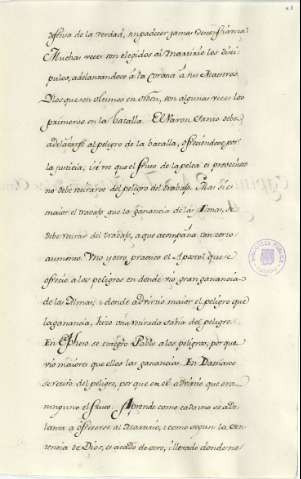 defensa de la verdad, sin padecer jamas desconfiança.
Muchas veces son elegidos al Martirio los Disci-
pulos, adelantandose à la Corona à sus Maestros.
Y los que son ultimos en orden, son algunas veces los
primeros en la batalla. El Varon Santo debe
adelantarse al peligro de la batalla, ofreciendose por
la justicia, si cree que el fruto de la pelea es provechoso
no debe retirarse del peligro del trabajo. Mas si es
maior el trabajo que la ganancia de las Almas, se
debe retirar del trabajo, a que acompaña tan corto
aumento. Uno y otro practico el Apostol que se
ofrecio a los peligros en donde vio gran ganancia
de las Almas; y donde advirtio maior el peligro que
la ganancia, hizo una retirada sabia del peligro.
En Epheso se entregò Pablo a los peligros, porque
vio maiores que ellos las ganancias. En Damasco
se retirò del peligro, porque en el advirtio que era
ninguno el fruto. Aprende como Catorno se ade-
lanta a ofrecerse al Martirio, y como segun la sen-
tencia de Dios, es acabo de otro, y llevado donde no